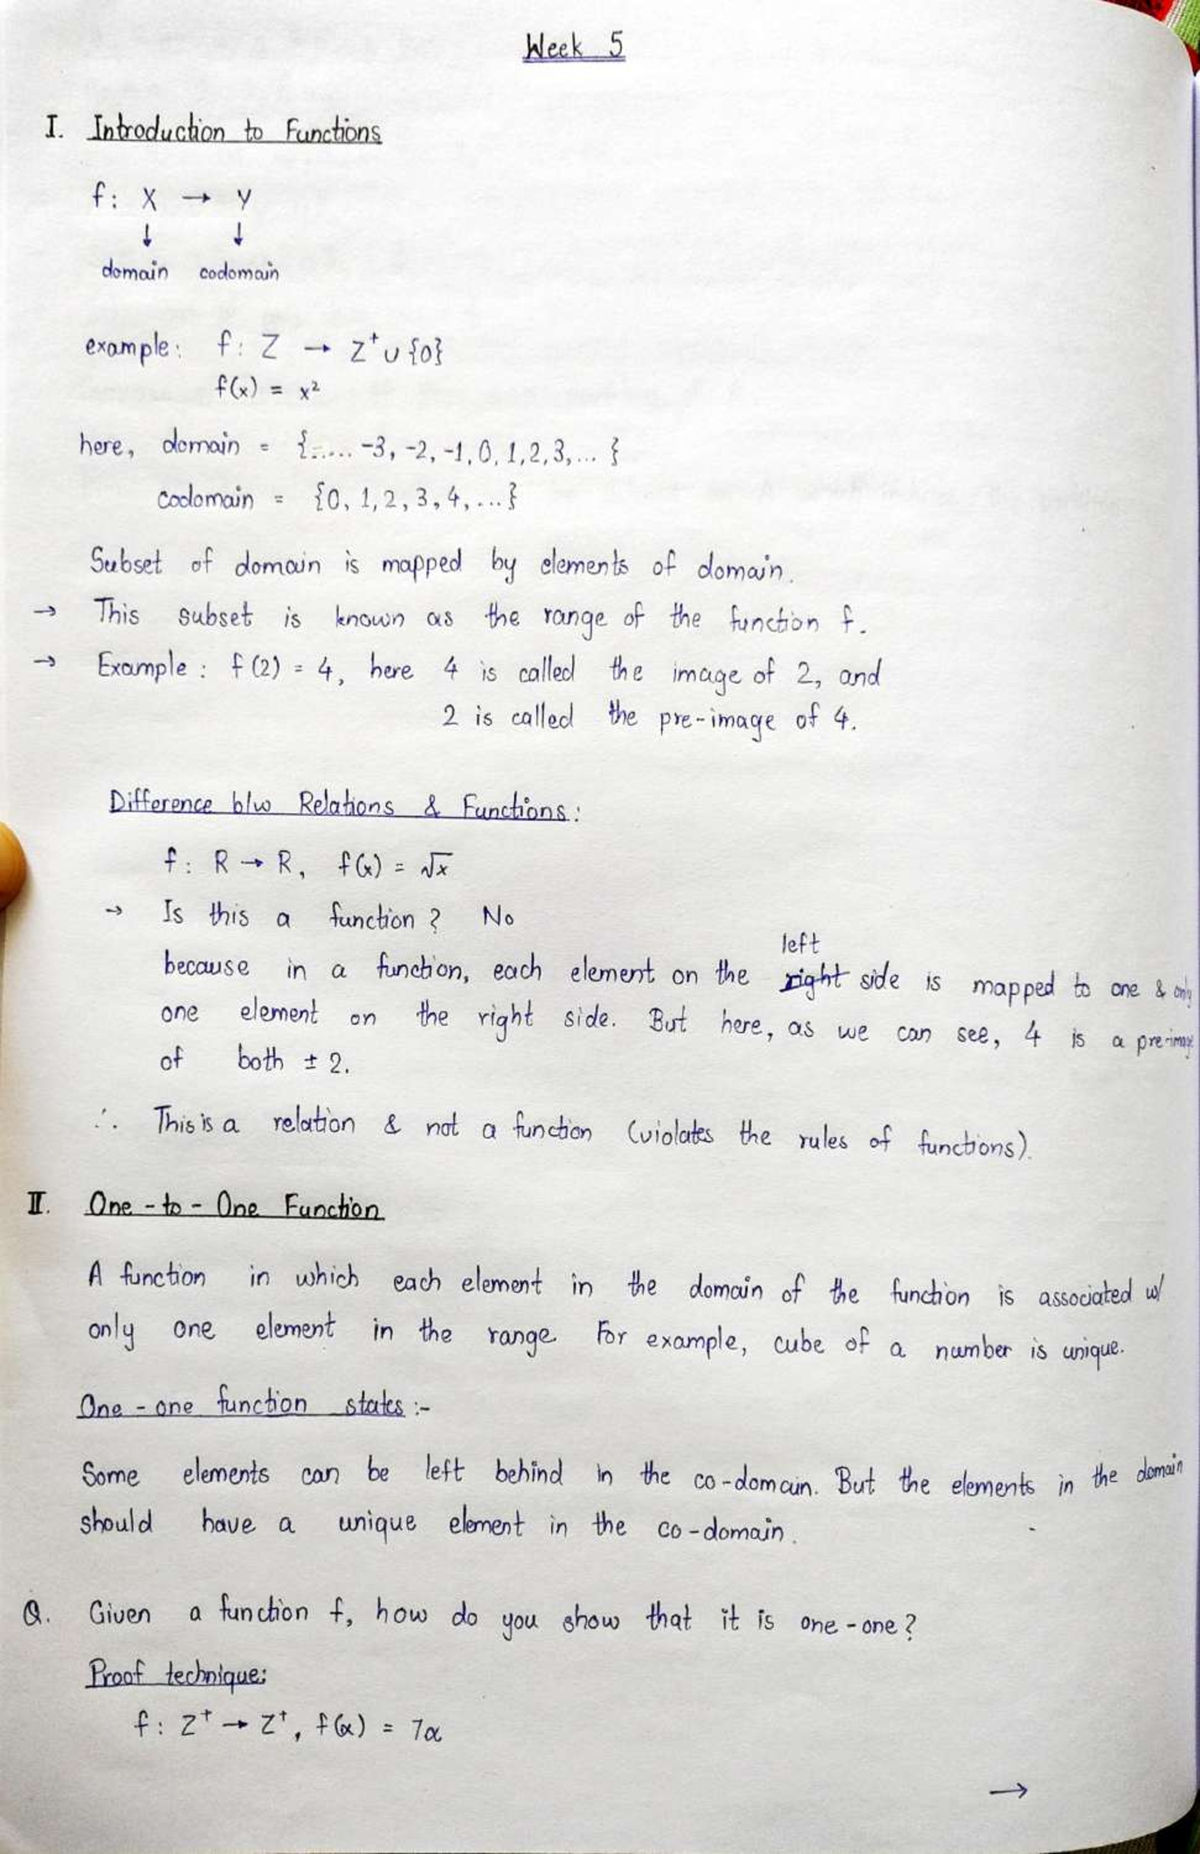 Week 5
I. Introduction to Functions
f: X → Y
↓ ↓
domain codomain
example: f: Z → Z⁺∪{0}
f(x) = x²
here, domain = {...... -3, -2, -1, 0, 1, 2, 3, ... }
codomain = {0, 1, 2, 3, 4, ...}
Subset of domain is mapped by elements of domain.
→ This subset is known as the range of the function f.
→ Example : f(2) = 4, here 4 is called the image of 2, and
2 is called the pre-image of 4.
Difference b/w Relations & Functions:
f: R → R, f(x) = √x
→ Is this a function? No
left
because in a function, each element on the right side is mapped to one & only
one element on the right side. But here, as we can see, 4 is a pre-image
of both ± 2.
∴ This is a relation & not a function (violates the rules of functions).
II. One-to-One Function
A function in which each element in the domain of the function is associated w/
only one element in the range. For example, cube of a number is unique.
One-one function states :-
Some elements can be left behind in the co-domain. But the elements in the domain
should have a unique element in the co-domain.
Q. Given a function f, how do you show that it is one-one?
Proof technique:
f: Z⁺ → Z⁺, f(x) = 7x
→